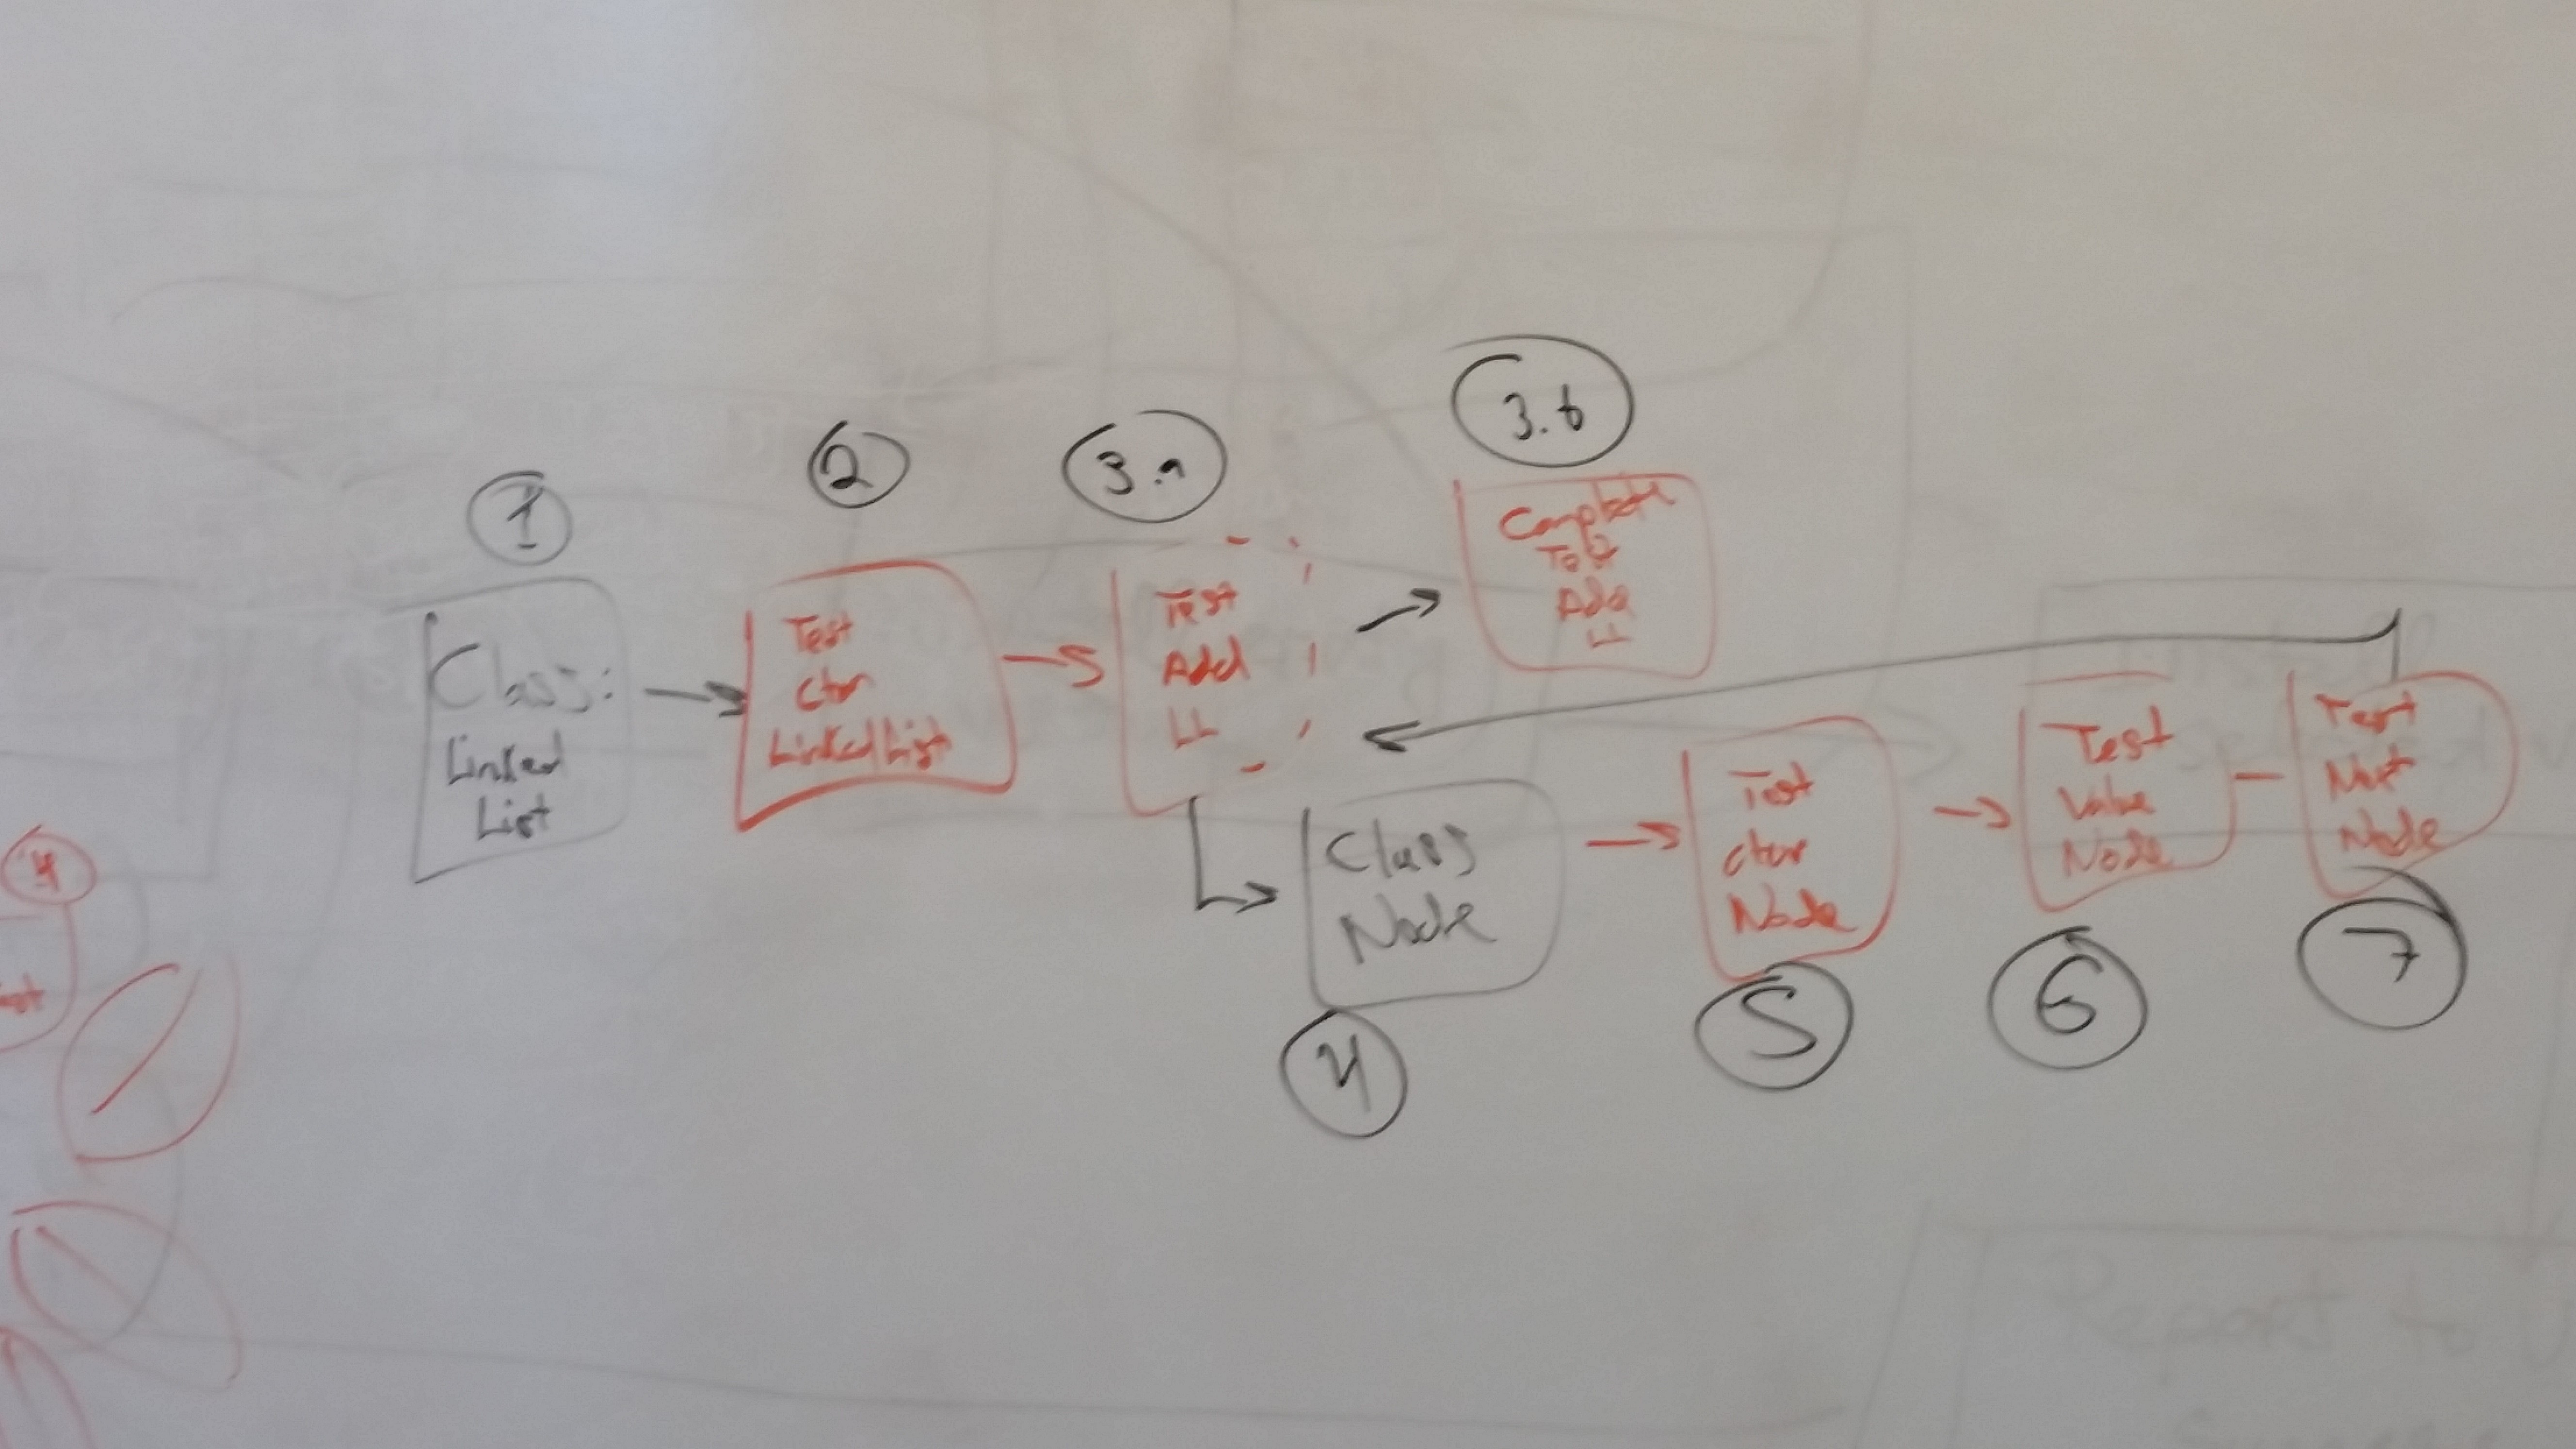 1
Class:
Linked
List
2
Test
Ctor
LinkedList
3.a
Test
Add
LL
3.b
Complete
Test
Add
LL
4
Class
Node
5
Test
ctor
Node
6
Test
Value
Node
7
Test
Next
Node
4
Report to